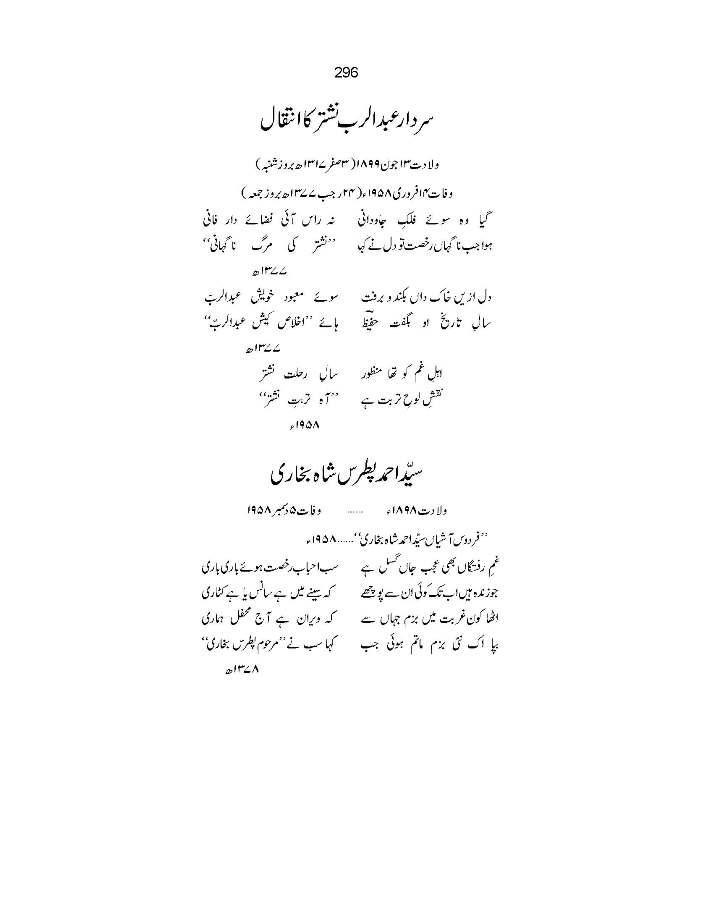 296
سردار عبدالرب نشتر کا انتقال
ولادت ۱۳ جون ۱۸۹۹ (۳ صفر ۱۳۱۷ھ بروز شنبہ)
وفات ۱۴ فروری ۱۹۵۸ء (۲۴ رجب ۱۳۷۷ھ بروز جمعہ)
گیا وہ سوئے فلکِ جاودانی نہ راس آئی فضائے دار فانی
ہوا جب ناگہاں رخصت تو دل نے کہا ’’نشتر کی مرگ ناگہانی‘‘
۱۳۷۷ھ
دل ازیں خاک داں بکند و برفت سوئے معبود خویش عبدالربّ
سالِ تاریخ او بگفت حفیظ ہائے ’’اخلاص کیش عبدالربّ‘‘
۱۳۷۷ھ
اہلِ غم کو تھا منظور سالِ رحلت نشتر
نقشِ لوح تربت ہے ’’آہ تربتِ نشتر‘‘
۱۹۵۸ء
سیّد احمد پطرس شاہ بخاری
ولادت ۱۸۹۸ء ...... وفات ۵ دسمبر ۱۹۵۸
’’فردوس آشیاں سیّد احمد شاہ بخاری‘‘......۱۹۵۸ء
غمِ رفتگاں بھی عجب جاں گسل ہے سب احباب رخصت ہوئے باری باری
جو زندہ ہیں اب تک کوئی ان سے پوچھے کہ سینے میں ہے سانس یا ہے کٹاری
اٹھا کون غربت میں بزم جہاں سے کہ ویران ہے آج محفل ہماری
بپا اک نئی بزم ماتم ہوئی جب کہا سب نے ’’مرحوم پطرس بخاری‘‘
۱۳۷۸ھ